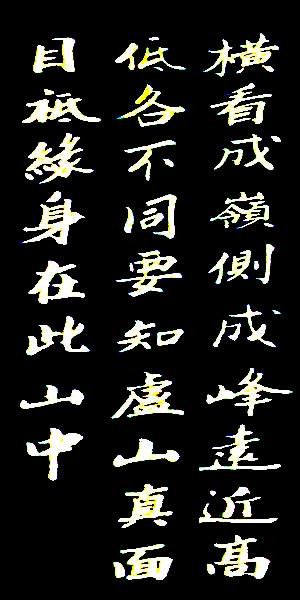 橫看成嶺側成峰遠近高
低各不同要知盧山真面
目祗緣身在此山中